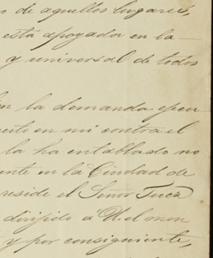 de aquellos lugares,
está apoyada en la
y universal de todos
en la demanda
en mi contra el
la ha entablado no
ente en la Ciudad de
reside el Señor
dirigido a
y por consiguiente,